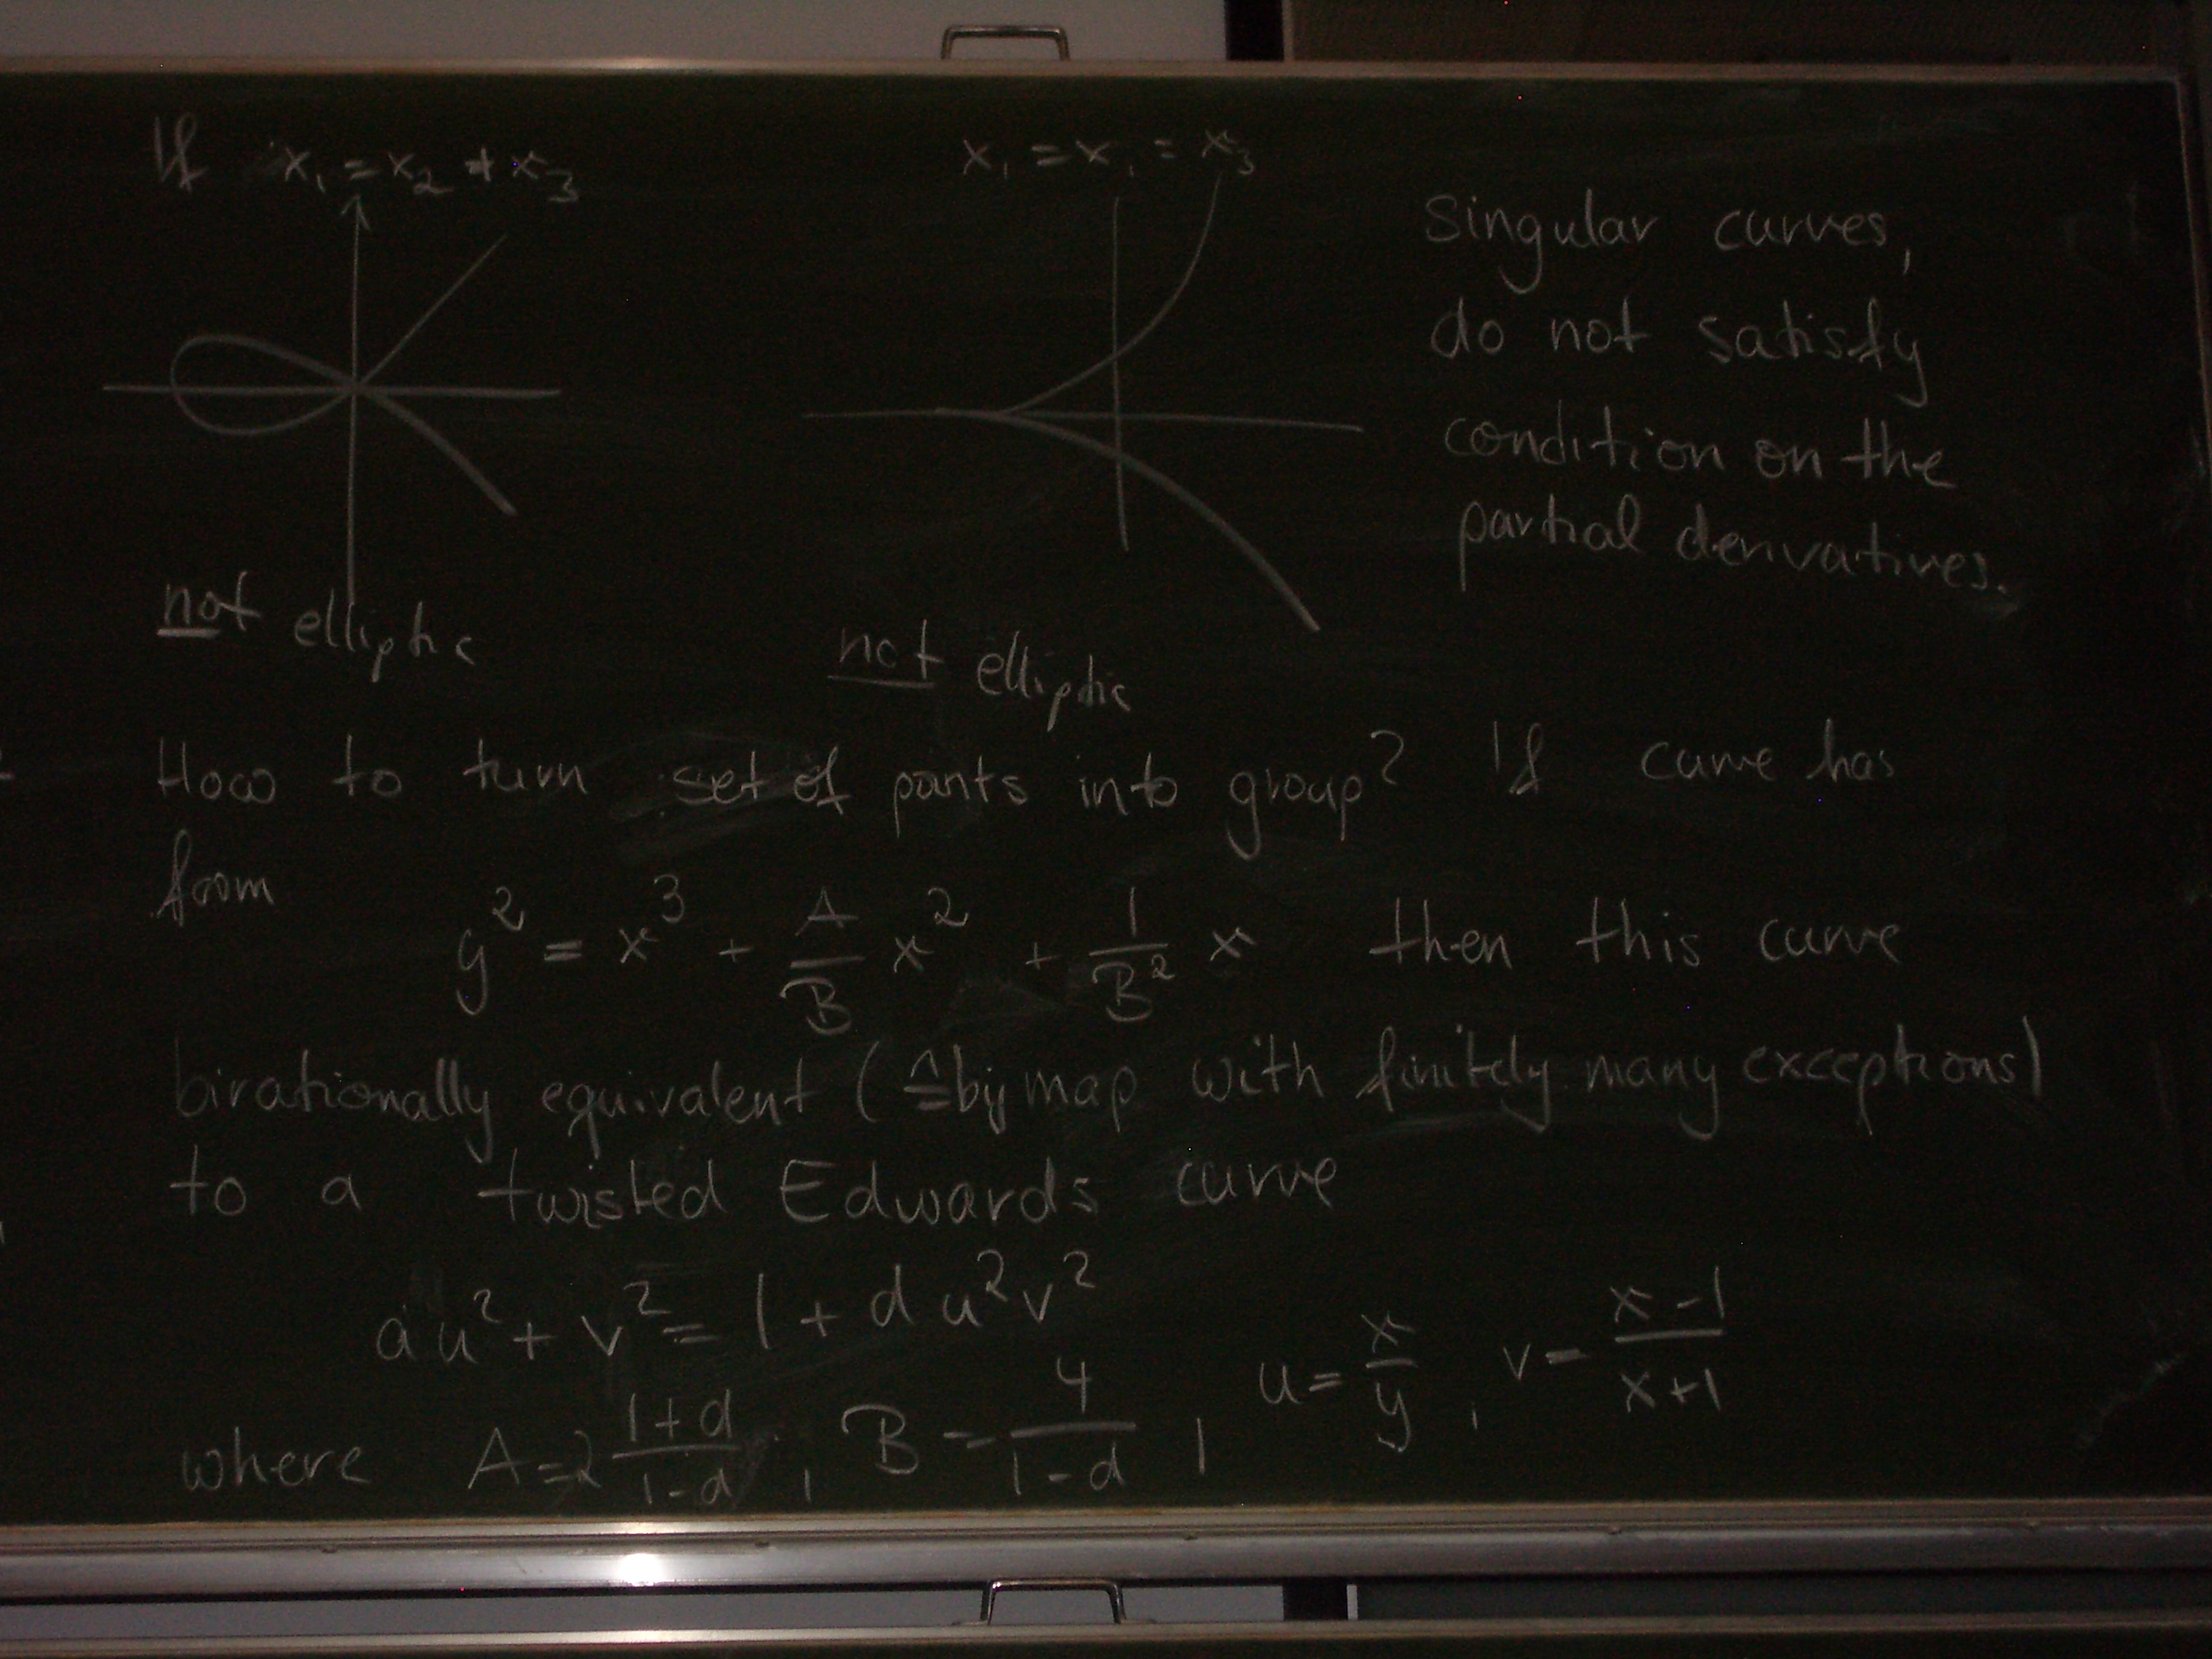 If x₁ = x₂ ≠ x₃
x₁ = x₁ = x₃
Singular curves,
do not satisfy
condition on the
partial derivatives.
not elliptic
not elliptic
How to turn set of points into group? If curve has
form
y² = x³ + A/B x² + 1/B² x then this curve
birationally equivalent (≙ bij map with finitely many exceptions)
to a twisted Edwards curve
au² + v² = 1 + du²v²
where A = 2 (1+d)/(1-d), B = 4/(1-d), u = x/y, v = (x-1)/(x+1)